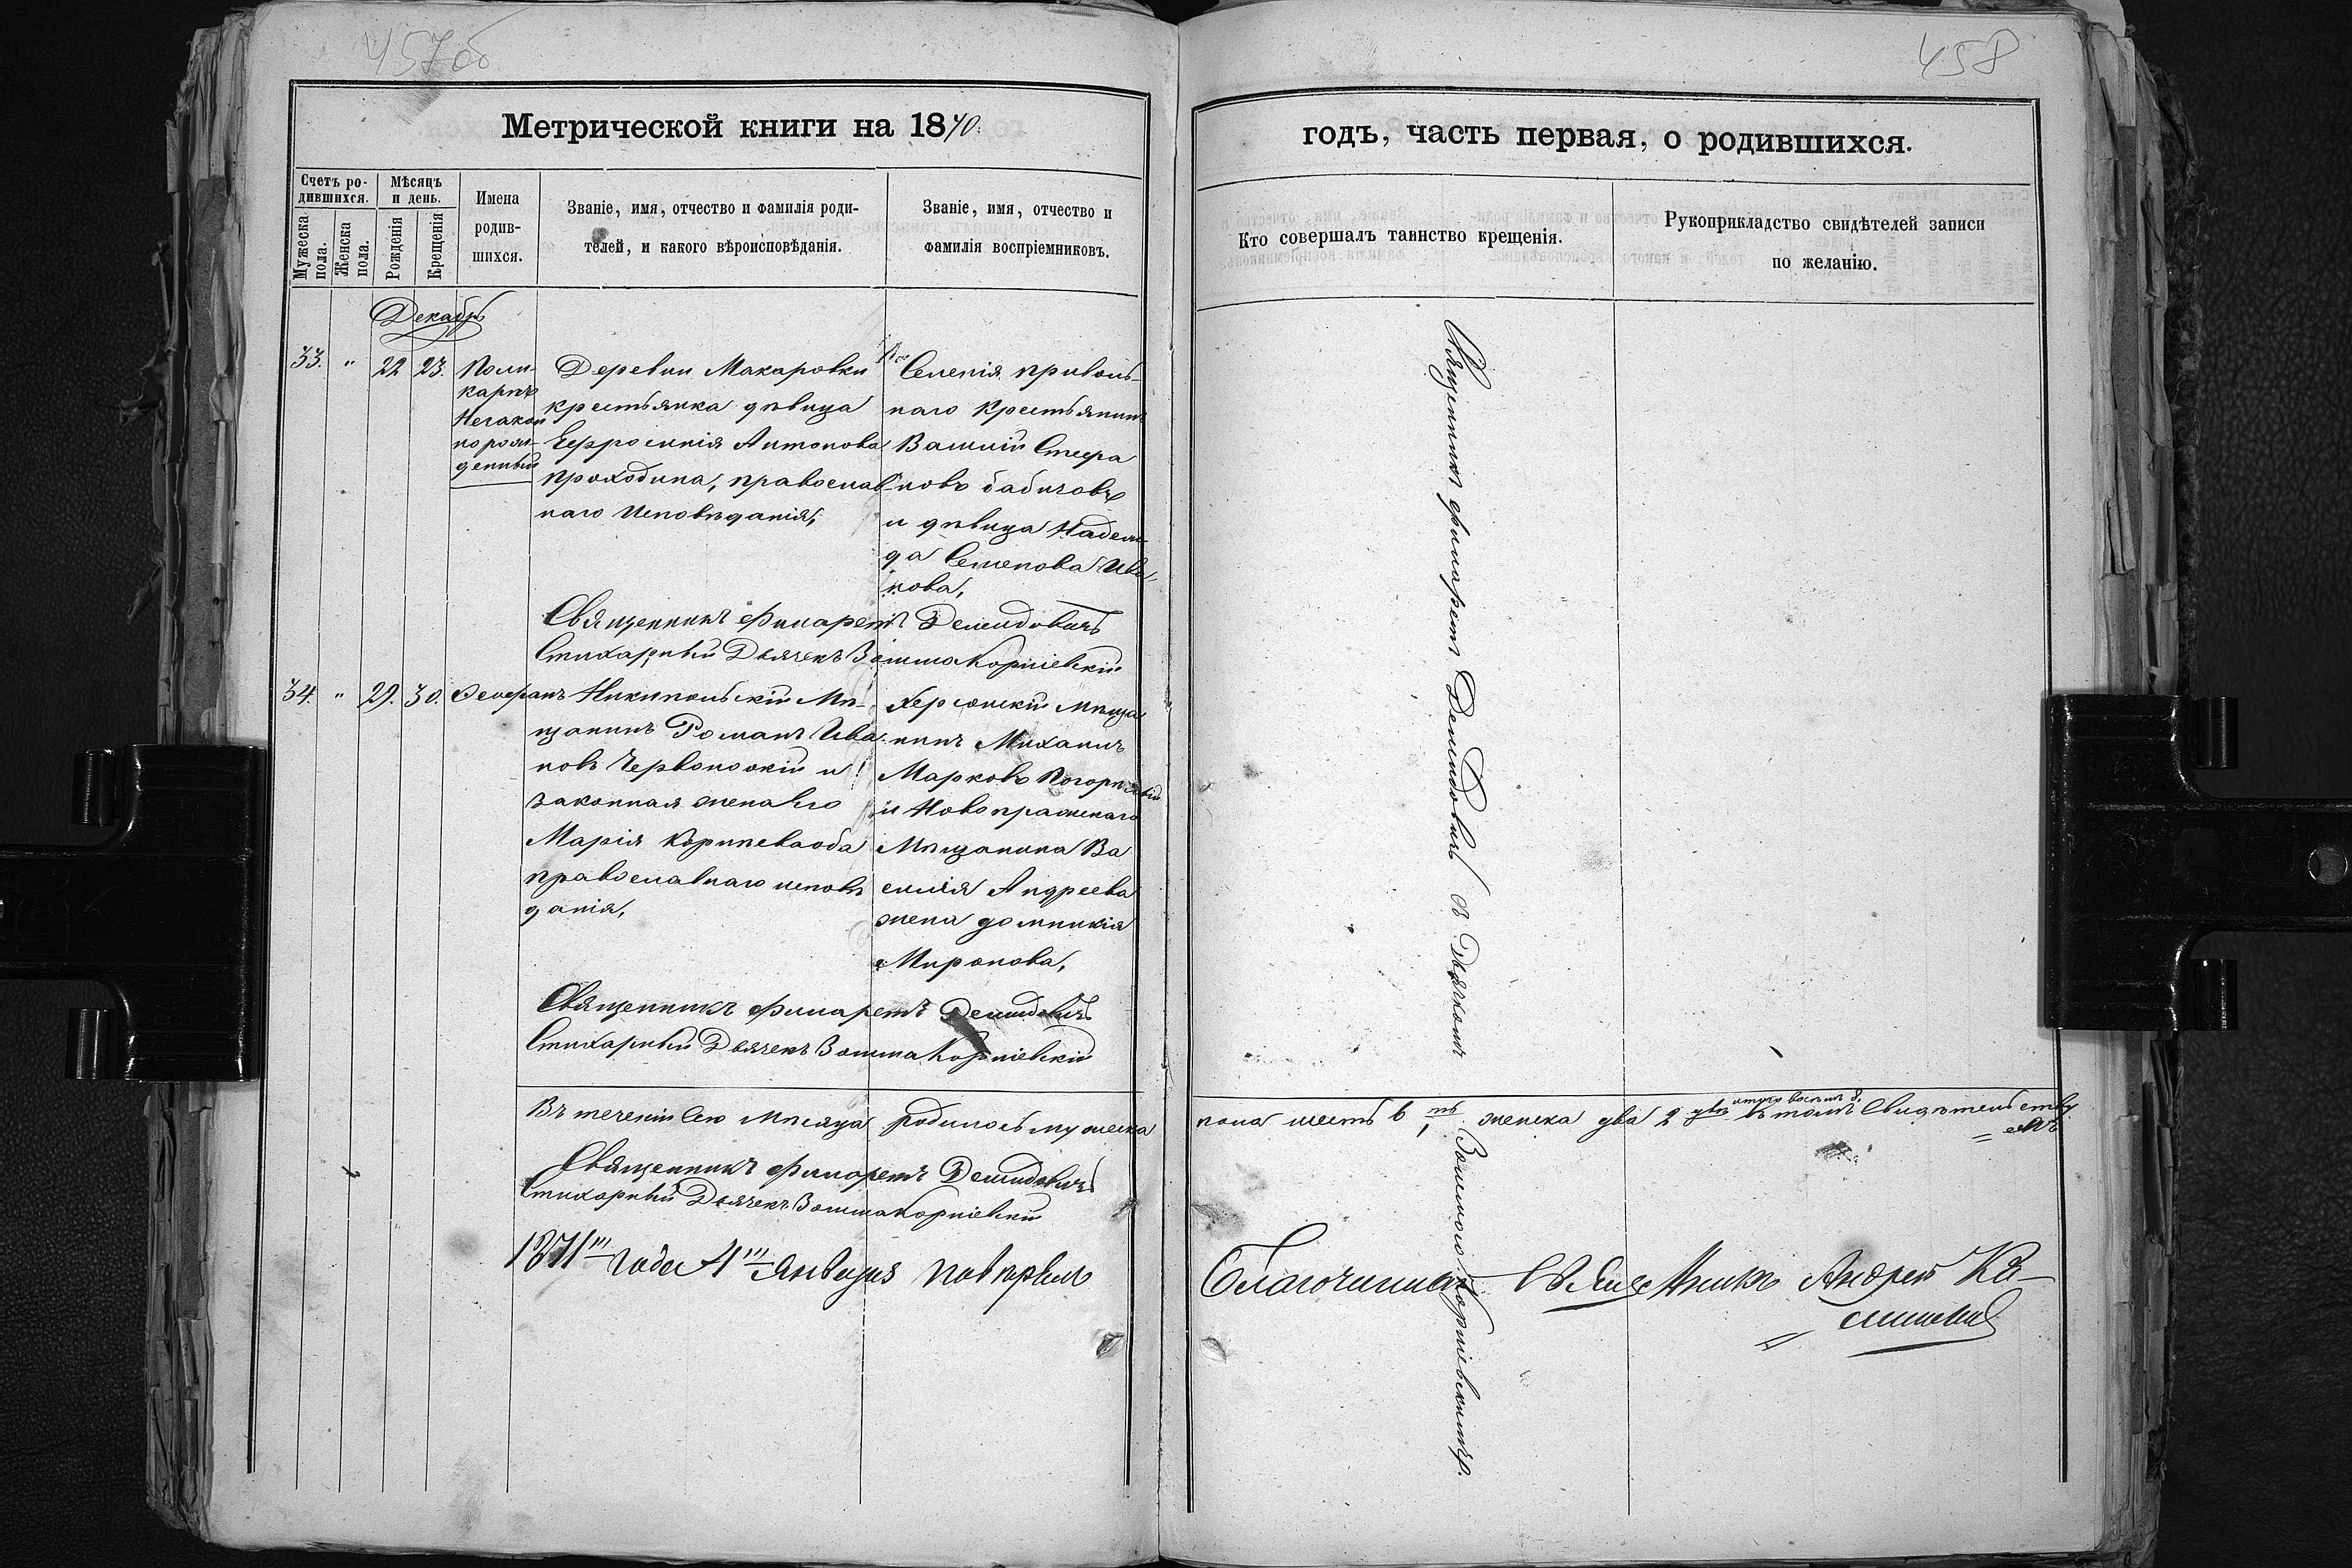 457об
458
Метрической книги на 1870.
годъ, часть первая, о родившихся.
Счетъ ро-
дившихся.
Мужеска
пола.
Женска
пола.
Мѣсяцъ
и день.
Рожденія
Крещенія
Имена
родив-
шихся.
Званіе, имя, отчество и фамилія роди-
телей, и какого вѣроисповѣданія.
Званіе, имя, отчество и
фамилія воспріемниковъ.
Кто совершалъ таинство крещенія.
Рукоприкладство свидѣтелей записи
по желанію.
Декабрь
33. " 22 23.
Поли-
карпъ
Незакон
порож-
денный
Деревни Макаровки
крестьянка дѣвица
Ефросинія Антонова
Проходина, православ
наго исповѣданія,
Селенія Приволь-
наго крестьянинъ
Василій Стефа
новъ Бабичовъ
и дѣвица Надеж-
да Семенова Ива-
нова,
Священникъ Филаретъ Демидовичъ
Стихарный Дьячекъ Зосима Корніевскій
34. " 29. 30. Стефанъ
Никипольскій Мѣ-
щанинъ Романъ Ива
новъ Червоноокій и
законная жена его
Марія Корніева оба
православнаго исповѣ
данія,
Херсонскій мѣща
нинъ Михаилъ
Марковъ
и Новопражскаго
Мѣщанина Ва
силія Андреева
жена Домникія
Миронова,
Священникъ Филаретъ Демидовичъ
Стихарный Дьячекъ Зосима Корніевскій
Священникъ Филаретъ Демидовичъ съ Дьячкомъ Зосимою Корніевскимъ.
Въ теченіи сего Мѣсяца родилось мужеска
пола шесть 6 ть женска два 2 два итого восемь 8. въ томъ Свидѣтельству
емъ
Священникъ Филаретъ Демидовичъ
Стихарный Дьячекъ Зосима Корніевскій
1871го года 4го Января повѣрялъ
Благочинный Священникъ Андрей Ка-